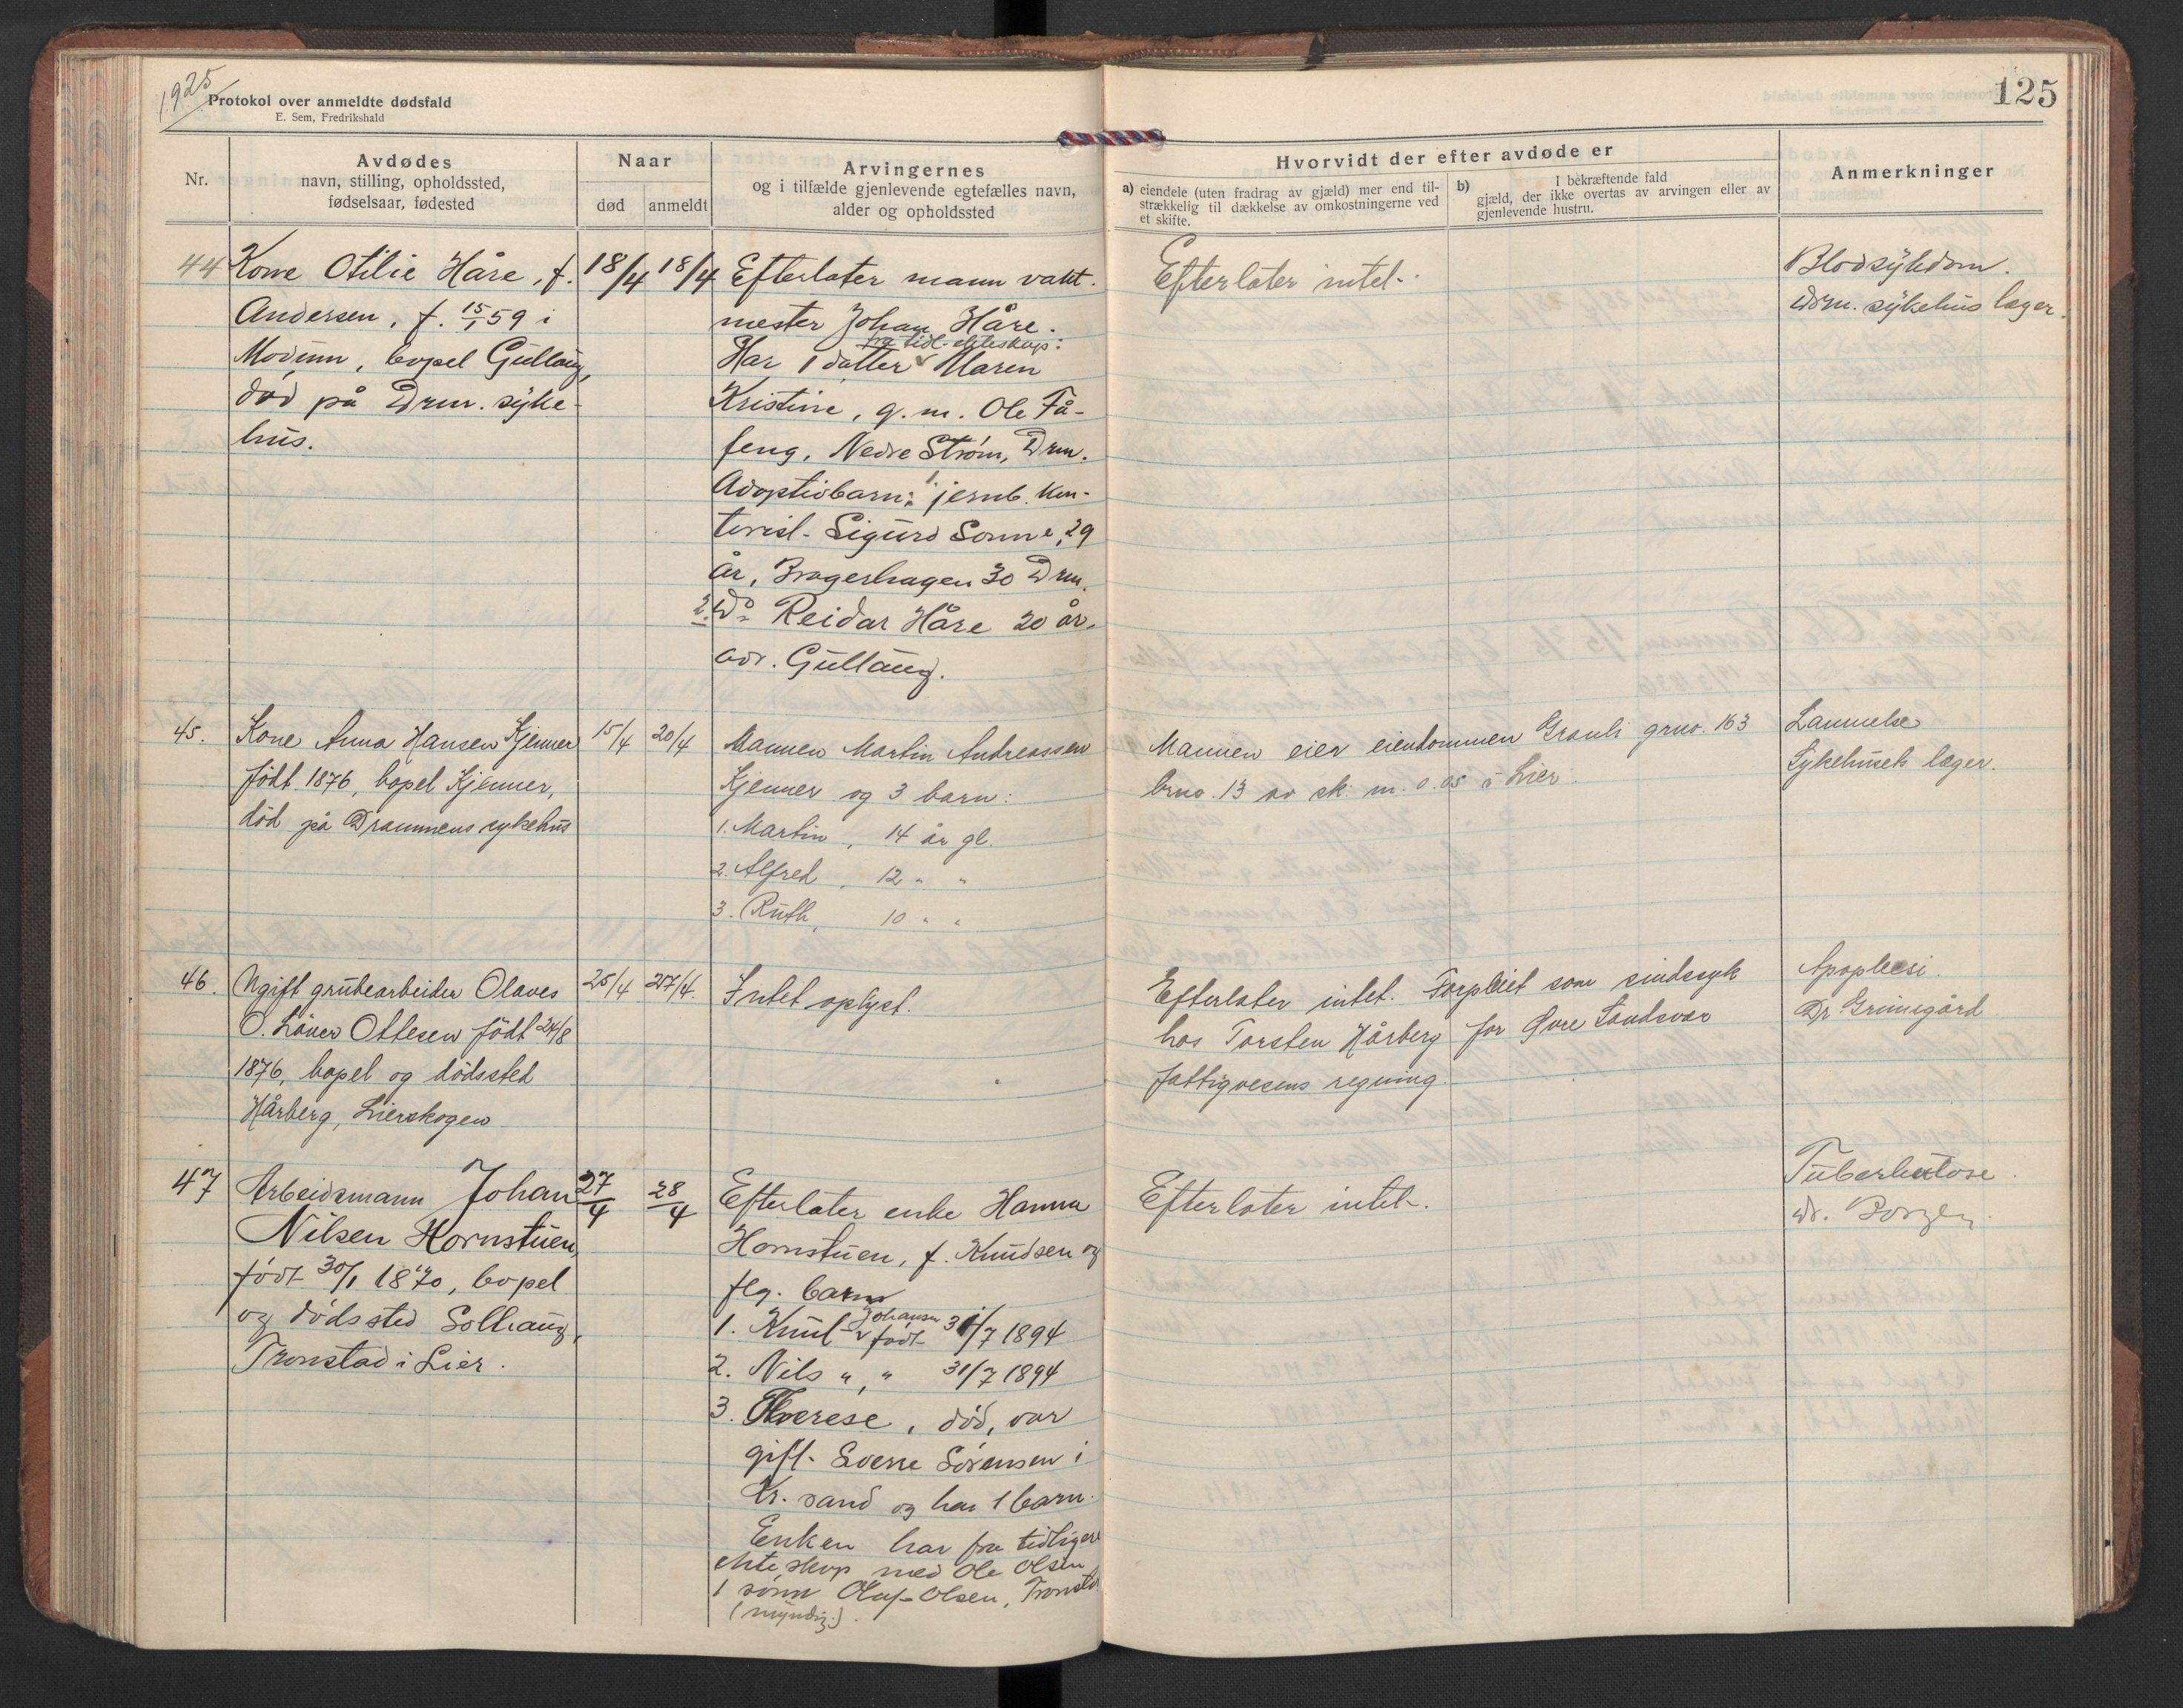 1925
Protokol over anmeldte dødsfald
E. Sem, Fredrikshald
125
Nr.
Avdødes
navn, stilling, opholdssted,
fødselsaar, fødested
Naar
død
anmeldt
Arvingernes
og i tilfælde gjenlevende egtefælles navn,
alder og opholdssted
Hvorvidt der efter avdøde er
a) eiendele (uten fradrag av gjæld) mer end til-
strækkelig til dækkelse av omkostningerne ved
et skifte.
b) I bekræftende fald
gjæld, der ikke overtas av arvingen eller av
gjenlevende hustru.
Anmerkninger
44
Kone Otilie Håre, f.
Andersen, f. 15/1 59 i
Modum, bopel Gullaug,
död på Drm. syke-
hus.
18/4
18/4
Efterlater mann vakt-
mester Johan Håre.
fra tidl. ekteskap:
Har 1 datter Maren
Kristine, g. m. Ole Få-
feng, Nedre Ström, Drm.
Adoptivbarn: 1. jernb. kon-
torist Sigurd Sonne, 29
år, Bragerhagen 30 Drm.
2. Do Reidar Håre 20 år.
adr. Gullaug.
Efterlater intet.
Blodsykdom.
Drm. sykehus læger.
45.
Kone Anna Hansen Kjenner
født 1876, bopel Kjenner,
død på Drammens sykehus
15/4
20/4
Mannen Martin Andreassen
Kjenner og 3 barn:
1. Martin, 14 år gl.
2. Alfred, 12 " "
3. Ruth, 10 " "
Mannen eier eiendommen Grauli grno. 163
brno. 13 av sk. m. 0.05 i Lier
Lammelse
Sykehusets læger.
46.
Ugift grubearbeider Olaves
O. Låver Ottesen født 24/8
1876, bopel og dødssted
Hårberg, Lierskogen
25/4
27/4.
Intet oplyst.
Efterlater intet. Forpleiet som sindssyk
hos Torsten Hårberg for Øvre Sandsvær
fattigvesens regning.
Apoplexi.
Dr Grimsgård
47
Arbeidsmann Johan
Nilsen Hornstuen,
född 30/1 1870, bopel
og dødssted Solhaug,
Tronstad i Lier.
27/4
28/4
Efterlater enke Hanna
Hornstuen, f. Knudsen og
flg. barn
1. Knut Johansen född 31/7 1894
2. Nils " , " 31/7 1894
3. Therese, död, var
gift Sverre Sörensen i
Kr. sand og har 1 barn.
Enken har fra tidligere
ekteskap med Ole Olsen
1 sönn Olaf Olsen, Tronstad
(myndig).
Efterlater intet.
Tuberkulose.
Dr. Borgen.